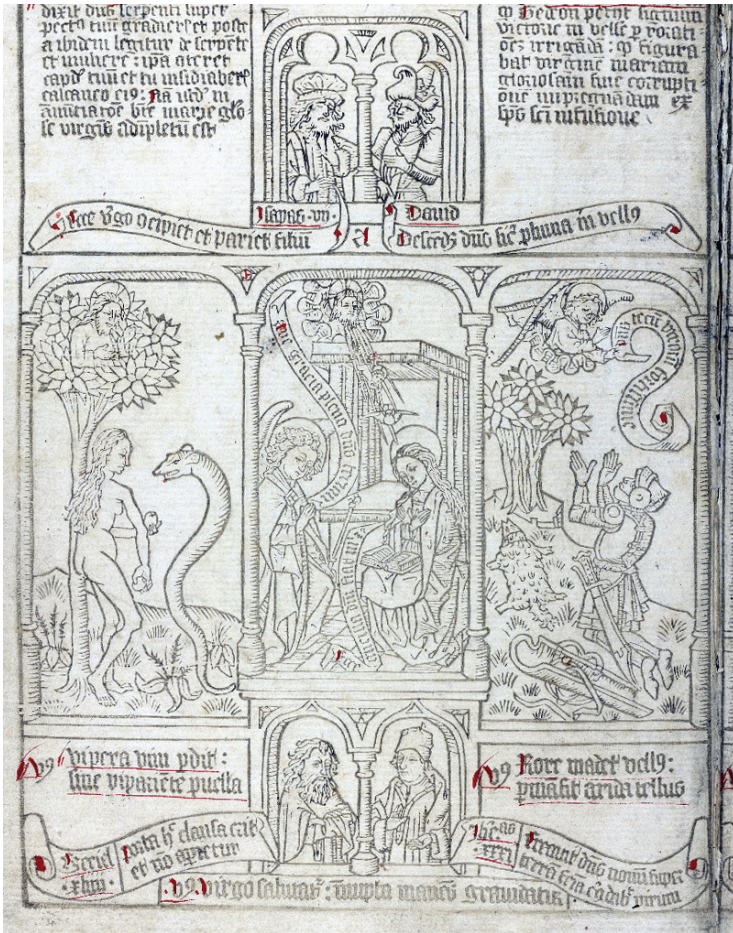 dixit dn̄s serpenti super
pect⁹ tuū gradieris et poste
a ibidem legitur de serpēte
et muliere : ipa ɔteret
caput tuū et tu insidiaber̄
calcaneo ei⁹ : Nā istd̄ in
ānūtiacōe btē marie glo-
se virgis adipletū est
victorie in vell'e p̱ rorati-
ōem irrigāda : q̄ figura
bat virginē mariam
gloriosam sine corrupti-
one impregnādam ex
sp̄o sc̄i infusione .
Ysayas . vii .
David
Ecce v̄go ɔcipiet et pariet filiū
a
Descēd⁹ dn̄s sic̄ pluvia in vell⁹
Ave gracia plena dn̄s tecum
Ecce ancilla dn̄i fiat michi
dn̄s tecū virorū fortissime
V⁹ vipera vim p̱dit :
sine vi pariente puella
V⁹ Rore madet vell⁹ :
p̱māsit arida tellus
Ezechiel
. xliiii .
Porta hec clausa erit
et nō aperietur
Iheremias
. xxxi
Creavit dn̄s novū super
terrā femīa cīrcūdabit virum
V⁹ . Virgo salutat̄ : īnupta manēs gravidat̄ .